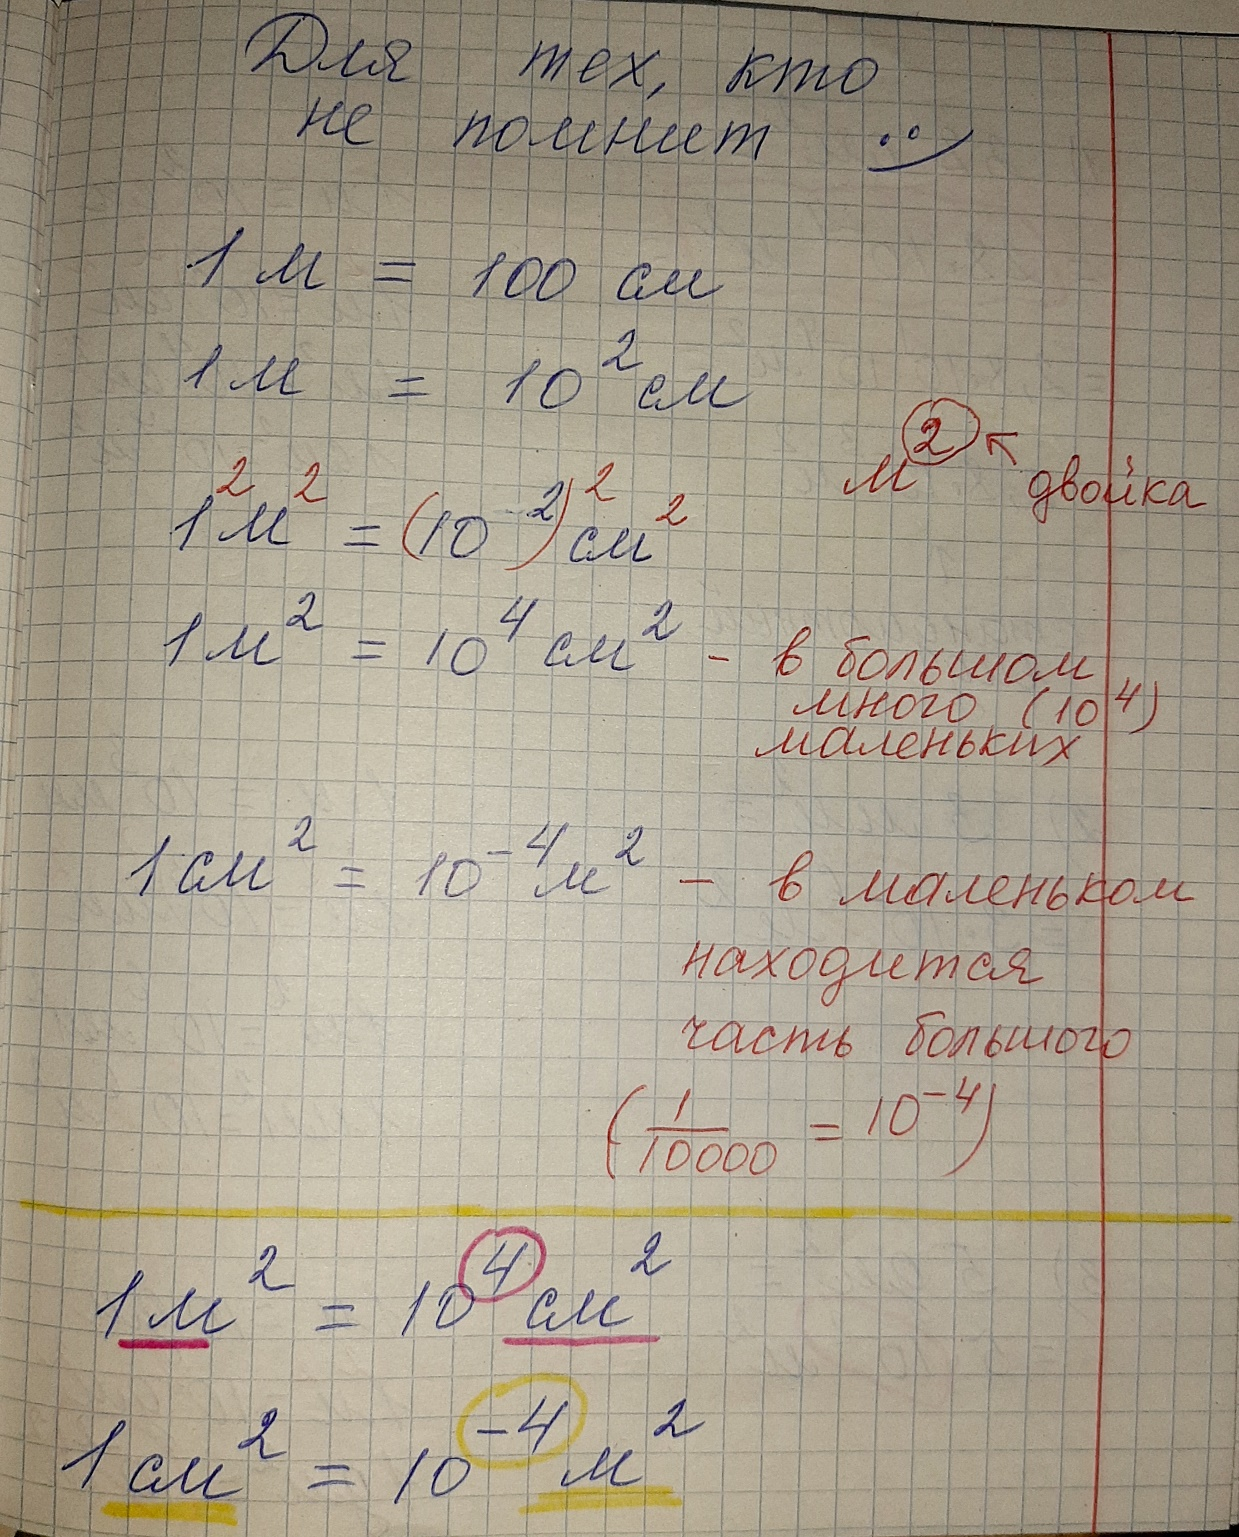 Для тех, кто
не помнит :)
1 м = 100 см
1 м = 10² см
м² ← двойка
1² м² = (10²)² см²
1 м² = 10⁴ см² - в большом
много (10⁴)
маленьких
1 см² = 10⁻⁴ м² - в маленьком
находится
часть большого
(1/10000 = 10⁻⁴)
1 м² = 10⁴ см²
1 см² = 10⁻⁴ м²